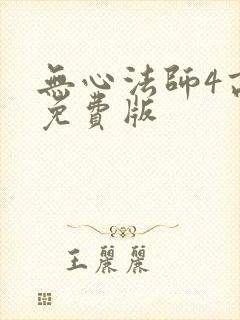 無心法師4
免費版
王麗麗